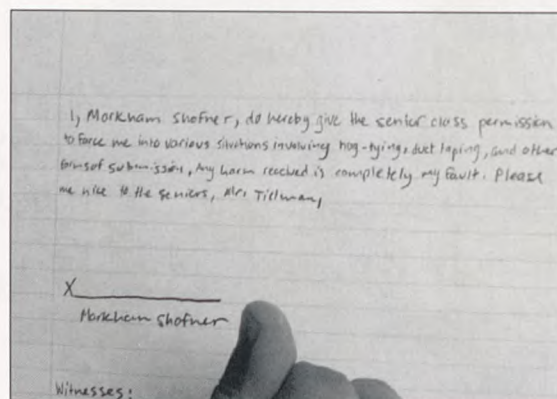 I, Markham Shofner, do hereby give the senior class permission
to force me into various situations involving hog-tying, duct taping, and other
forms of submission, Any harm received is completely my fault. Please
me nice to the seniors, Mr. Tillman,
X
Markham Shofner
Witnesses: